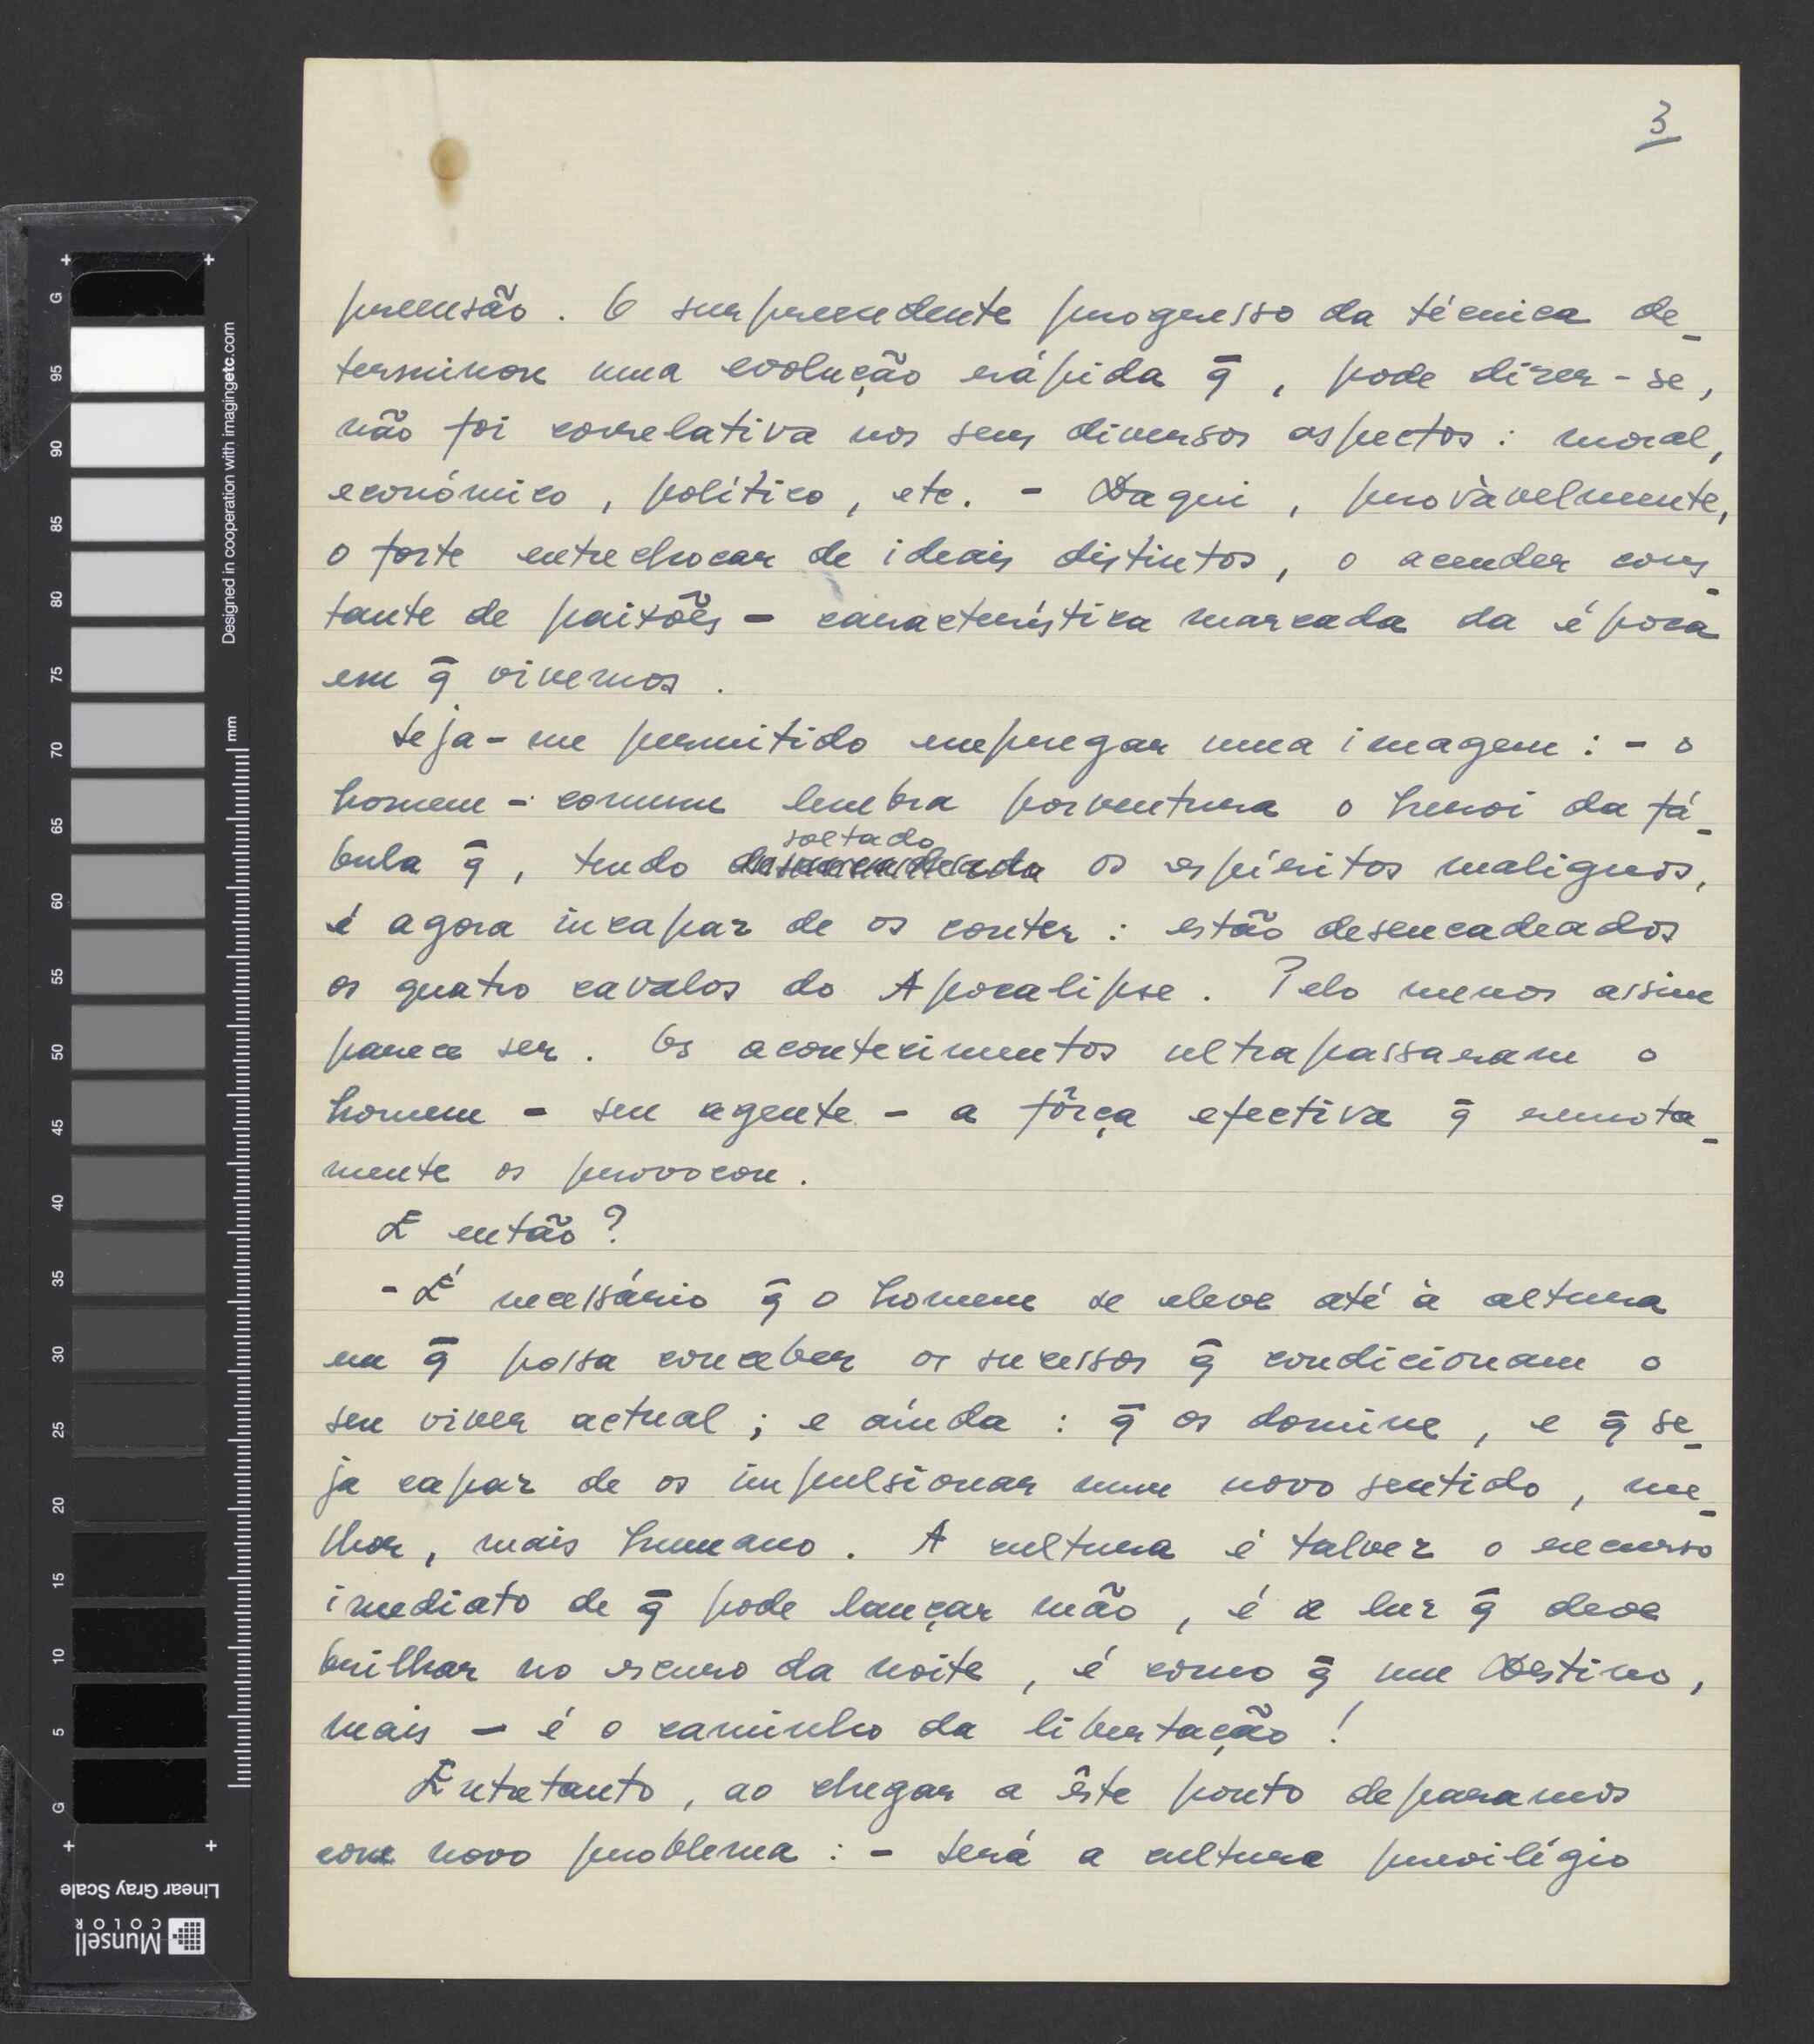 3
preensão. O surpreendente progresso da técnica de-
terminou uma evolução rápida q̄, pode dizer-se,
não foi correlativa nos seus diversos aspectos: moral,
económico, político, etc. - Daqui, provàvelmente,
o forte entrechocar de ideais distintos, o acender cons-
tante de paixões - característica marcada da época
em q̄ vivemos.
Seja-me permitido empregar uma imagem: - o
homem - comum lembra porventura o heroi da fá-
soltado
bula q̄, tendo os espíritos malignos,
é agora incapaz de os conter: estão desencadeados
os quatro cavalos do Apocalipse. Pelo menos assim
parece ser. Os acontecimentos ultrapassaram o
homem - seu agente - a fôrça efectiva q̄ remota-
mente os provocou.
E então?
- É necessário q̄ o homem se eleve até à altura
em q̄ possa conceber os sucessos q̄ condicionam o
seu viver actual; e aínda: q̄ os domine, e q̄ se-
ja capaz de os impulsionar num novo sentido, me-
lhor, mais humano. A cultura é talvez o recurso
imediato de q̄ pode lançar mão, é a luz q̄ deve
brilhar no escuro da noite, é como q̄ um Destino,
mais - é o caminho da libertação!
Entretanto, ao chegar a êste ponto deparamos
com novo problema: - será a cultura previlégio
G
95
90
85
80
75
70
65
60
55
50
45
40
35
30
25
20
15
10
5
G
mm
Designed in cooperation with imagingetc.com
Linear Gray Scale
Munsell
COLOR